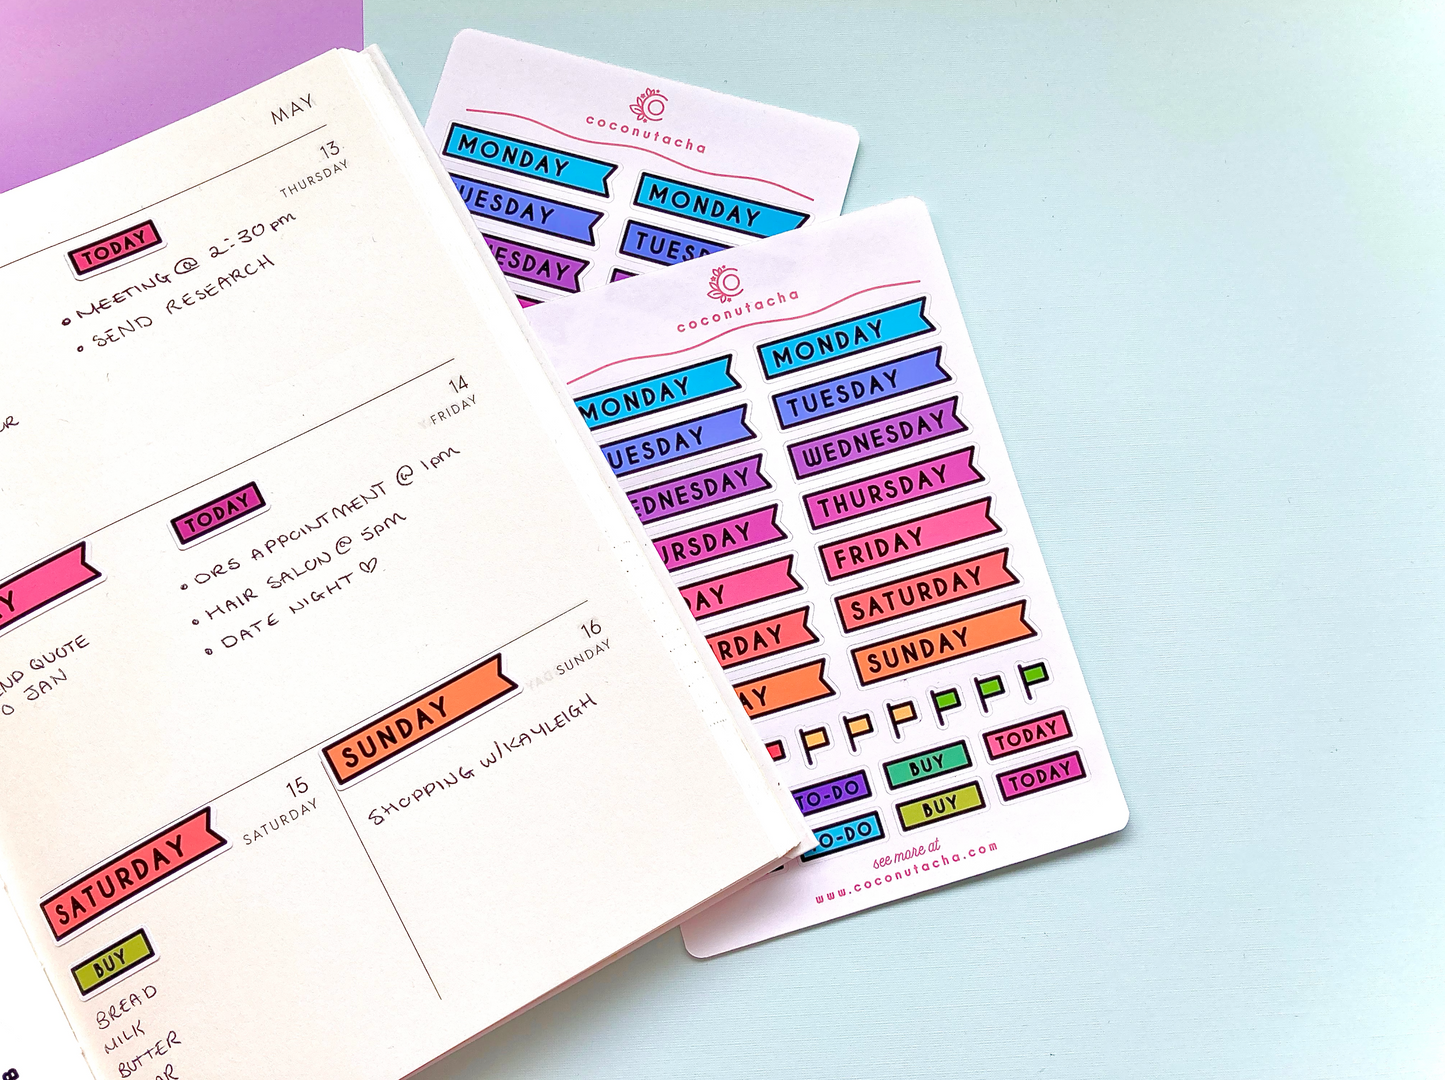 MAY
13
THURSDAY
TODAY
• MEETING @ 2:30pm
• SEND RESEARCH
14
FRIDAY
TODAY
• DRS APPOINTMENT @ 1pm
• HAIR SALON @ 5pm
• DATE NIGHT ♡
QUOTE
JAN
16
SUNDAY
SUNDAY
SHOPPING W/KAYLEIGH
15
SATURDAY
SATURDAY
BUY
BREAD
MILK
BUTTER
coconutacha
MONDAY
MONDAY
UESDAY
TUES
ESDAY
coconutacha
MONDAY
MONDAY
UESDAY
TUESDAY
EDNESDAY
WEDNESDAY
URSDAY
THURSDAY
DAY
FRIDAY
RDAY
SATURDAY
AY
SUNDAY
TO-DO
BUY
TODAY
TO-DO
BUY
TODAY
see more at
www.coconutacha.com